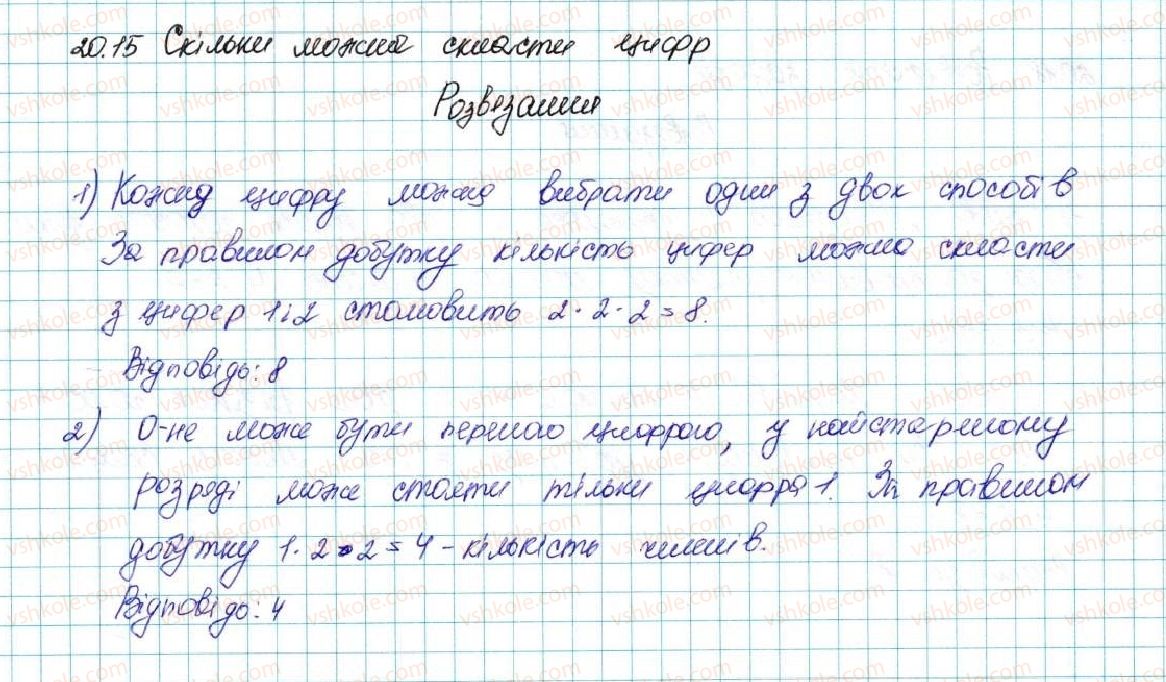 20.15 Скільки можна скласти цифр
Розвезання
1) Кожну цифру можна вибрати один з двох способів
За правилом добутку кількість цифер можна скласти
з цифер 1 і 2 становить 2·2·2=8.
Відповідь: 8
2) 0-не може бути першою цифрою, у найстаршому
розряді може стояти тільки цифра 1. За правилом
добутку 1·2·2=4 - кількість чисел в.
Відповідь: 4